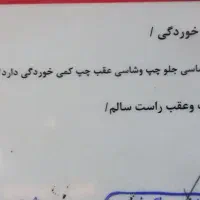 خوردگی /
اسی جلو چپ وشاسی عقب چپ کمی خوردگی دارد/
وعقب راست سالم/